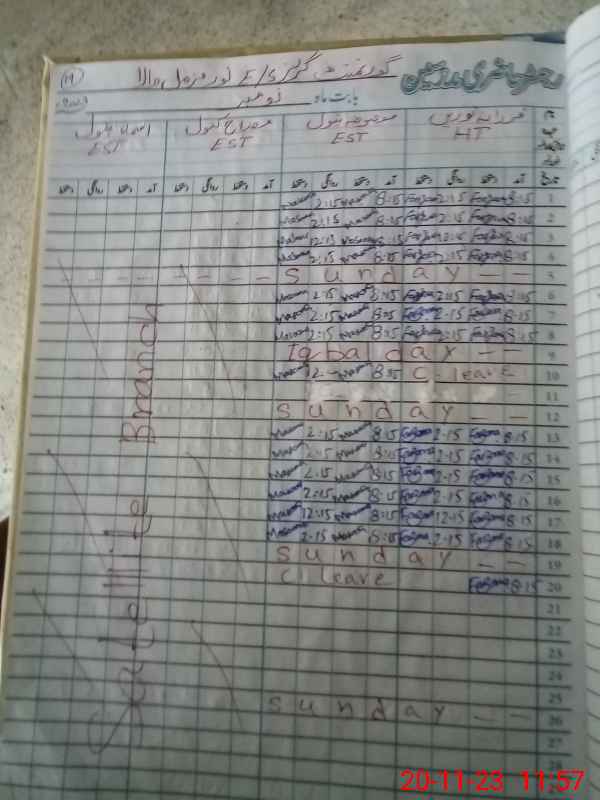 رجسٹر حاضری مدرسین
گورنمنٹ گرلز E/S نور مزمل والا
(19)
بابت ماہ نومبر
2023
فرزانہ نورین HT
معصومہ بتول EST
معراج بتول EST
اسماء بتول EST
تاریخ آمد دستخط روانگی دستخط آمد دستخط روانگی دستخط آمد دستخط روانگی دستخط آمد دستخط روانگی دستخط
1 8:15 Farzana 2:15 Farzana 8:15 2:15
2 8:15 Farzana 2:15 Farzana 8:15 2:15
3 8:15 Farzana 12:15 Farzana 8:15 12:15
4 8:15 Farzana 2:15 Farzana 8:15 2:15
5 Sunday
6 8:15 Farzana 2:15 Farzana 8:15 2:15
7 8:15 Farzana 2:15 Farzana 8:15 2:15
8 8:15 Farzana 2:15 Farzana 8:15 2:15
9 Iqbal day
10 C. leave 8:15 12:-
11
12 Sunday
13 8:15 Farzana 2:15 Farzana 8:15 2:15
14 8:15 Farzana 2:15 Farzana 8:15 2:15
15 8:15 Farzana 2:15 Farzana 8:15 2:15
16 8:15 Farzana 2:15 Farzana 8:15 2:15
17 8:15 Farzana 12:15 Farzana 8:15 12:15
18 8:15 Farzana 2:15 Farzana 8:15 2:15
19 Sunday
20 8:15 Farzana C leave
21
22
23
24
25
26 Sunday
27
28
29
Satellite Branch
20-11-23 11:57